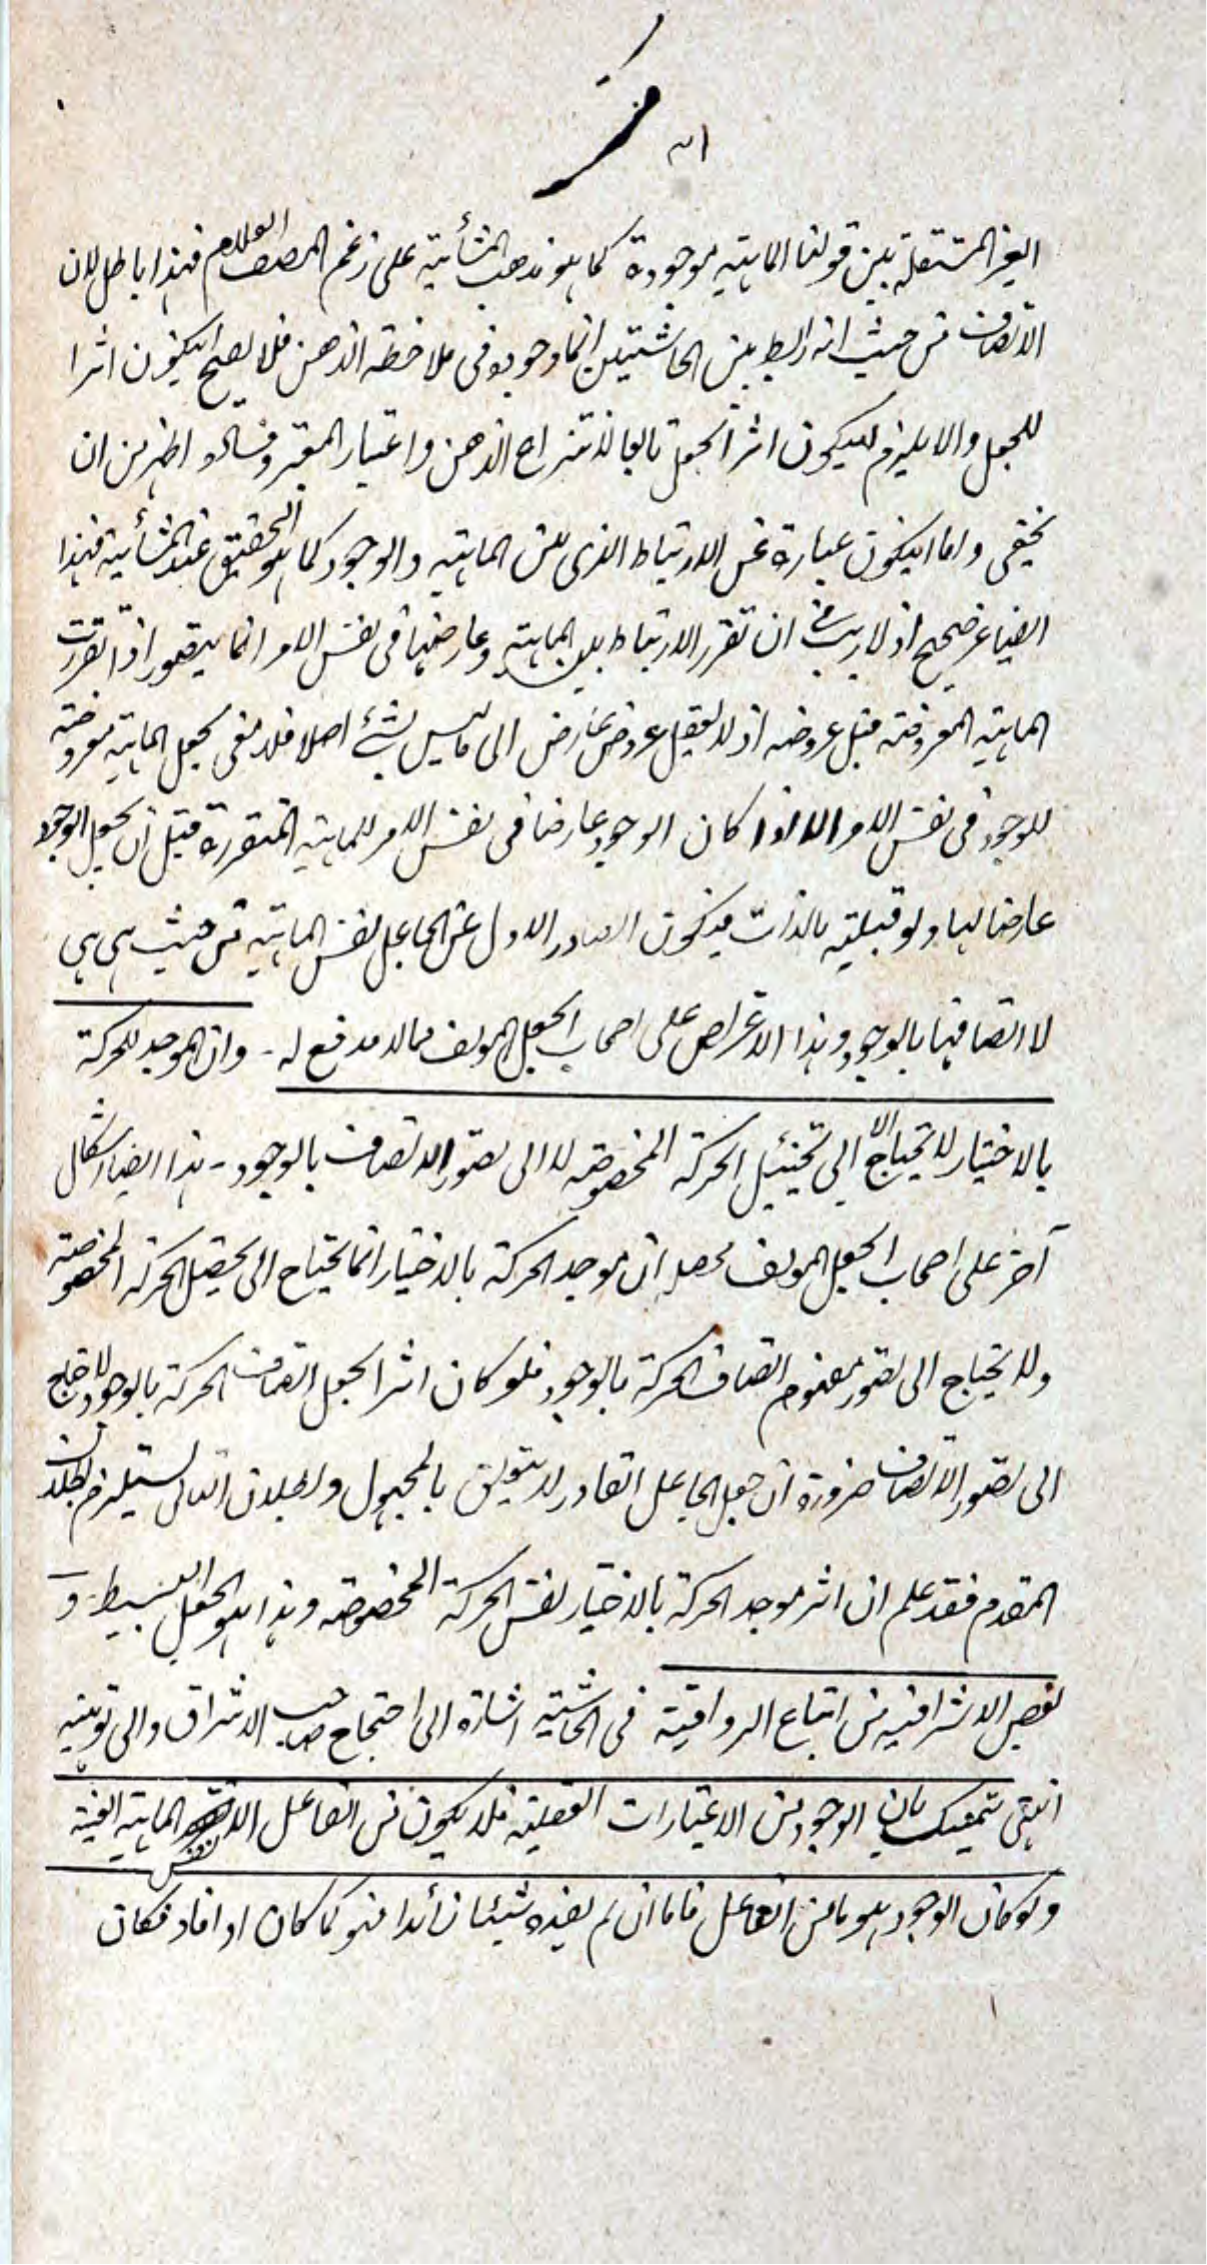 الغير المستقلة بين قولنا الماهية موجودة كما هو مذهب المشائية على زعم المصنف العلام فهذا باطل لان
الاتصاف من حيث انه رابط بين الحاشيتين انما وجوده فى ملاحظة الذهن فلا يصح ان يكون اثرا
للجعل والا يلزم ان يكون اثر الجعل تابعا لانتزاع الذهن واعتبار المعتبر وفساده اظهر من ان
يخفى واما ان يكون عبارة عن الارتباط الذى بين الماهية والوجود كما هو التحقيق عند المشائية فهذا
ايضا غير صحيح اذ لا ريب فى ان تقرر الارتباط بين الماهية وعارضها فى نفس الامر انما يتصور اذا تقررت
الماهية المعروضة قبل عروضه اذ لا يعقل عروض عارض الى ما ليس بشئ اصلا فلا معنى لجعل الماهية معروضة
للوجود فى نفس الامر الا اذا كان الوجود عارضا فى نفس الامر للماهية المتقررة قبل ان يجعل الوجود
عارضا لها ولو قبلية بالذات فيكون الصادر الاول عن الجاعل نفس الماهية من حيث هى هى
لا اتصافها بالوجود وهذا الاعتراض على اصحاب الجعل المؤلف مما لا مدفع له ـ وان الموجد للحركة
بالاختيار لا يحتاج الا الى تخييل الحركة المخصوصة لا الى تصور الاتصاف بالوجود ـ هذا ايضا اشكال
آخر على اصحاب الجعل المؤلف محصله ان موجد الحركة بالاختيار انما يحتاج الى تخييل الحركة المخصوصة
ولا يحتاج الى تصور مفهوم اتصاف الحركة بالوجود فلو كان اثر الجعل اتصاف الحركة بالوجود لاحتاج
الى تصور الاتصاف ضرورة ان جعل الجاعل القادر لا يتعلق بالمجهول وبطلان التالى يستلزم بطلان
المقدم فقد علم ان اثر موجد الحركة بالاختيار نفس الحركة المخصوصة وهذا هو الجعل البسيط ـ و
بعض الاشراقية من اتباع الرواقية فى الحاشية اشارة الى احتجاج صاحب الاشراق والى توهينه
انتهى يتمسك بان الوجود من الاعتبارات العقلية فلا يكون من الفاعل الا نفس الماهية العينية
ولو كان الوجود هو ما من الفاعل فاما ان لم يفده شيئا زائدا فهو كما كان او افاد فكان